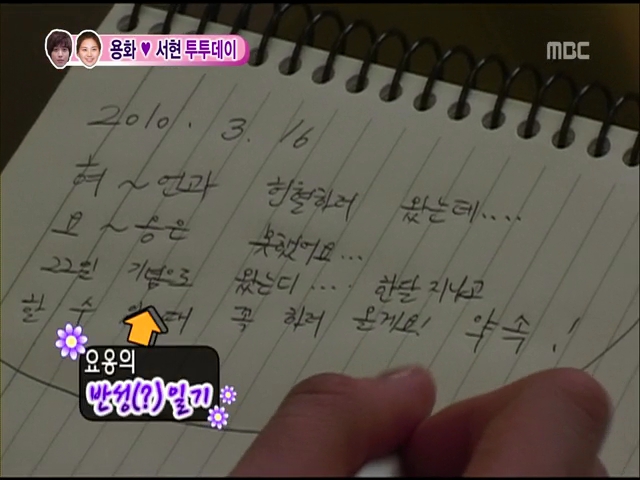 용화 ♥ 서현 투투데이
MBC
2010. 3. 16
혀 ~ 언과 헌혈하러 왔는데....
요 ~ 옹은 못했어요...
22일 기념으로 왔는데 .... 한달 지나고
할 수 꼭 하러 올게요! 약속!
요옹의
반성(?)일기